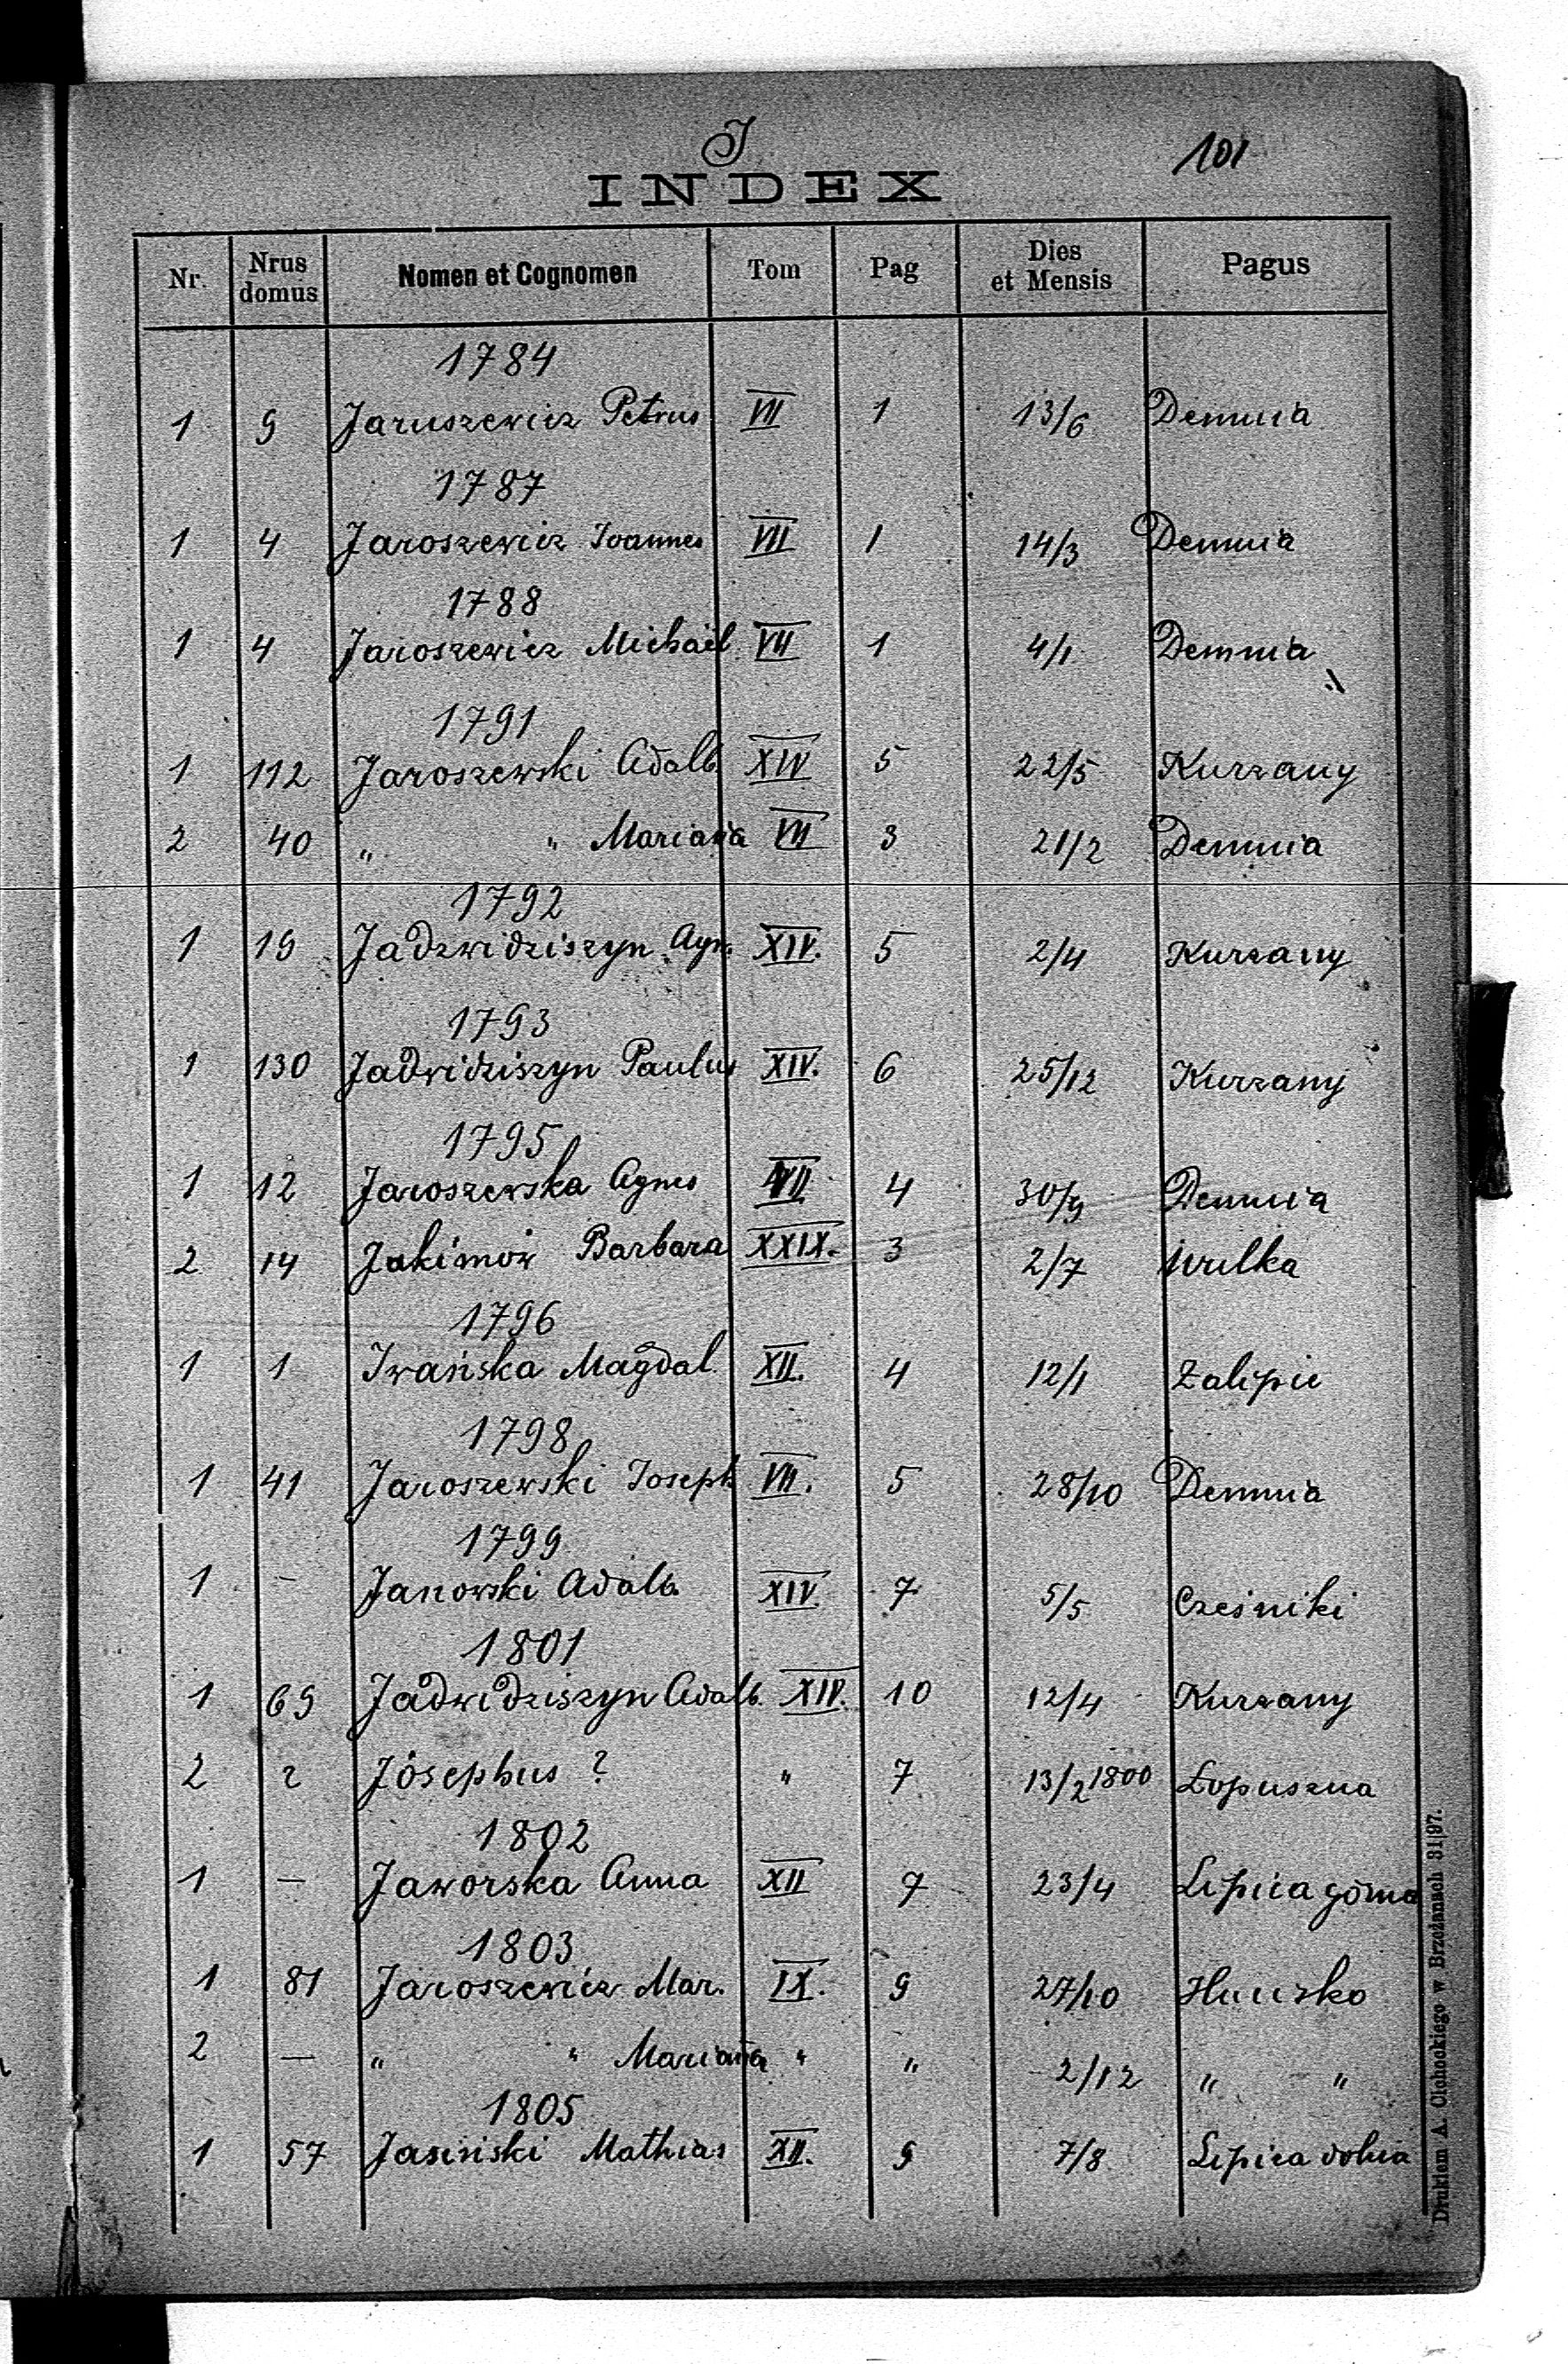 J
101
INDEX
Nr. Nrus domus Nomen et Cognomen Tom Pag Dies et Mensis Pagus
1784
1 9 Jaruszewicz Petrus VII 1 13/6 Demnia
1787
1 4 Jaroszewicz Ioannes VII 1 14/3 Demnia
1788
1 4 Jaroszewicz Michael VII 1 4/1 Demnia
1791
1 112 Jaroszewski Adalb. XIV 5 22/5 Kurzany
2 40 " " Marianna VII 3 21/2 Demnia
1792
1 19 Jadzwidziszyn Agn. XIV. 5 2/4 Kurzany
1793
1 130 Jadwidziszyn Paulus XIV. 6 25/12 Kurzany
1795
1 12 Jaroszewska Agnes VII 4 30/9 Demnia
2 14 Jakimów Barbara XXIX. 3 2/7 Wulka
1796
1 1 Iwańska Magdal. XII. 4 12/1 Zalipie
1798
1 41 Jaroszewski Joseph VII. 5 28/10 Demnia
1799
1 – Janowski Adalb. XIV. 7 5/5 Cześniki
1801
1 69 Jadwidziszyn Adalb. XIV. 10 12/4 Kurzany
2 2 Josephus ? " 7 13/2 1800 Łopuszna
1802
1 — Jaworska Anna XII 7 23/4 Lipica górna
1803
1 81 Jaroszewicz Mar. IX. 9 27/10 Hucisko
2 — " " Marianna " " 2/12 " "
1805
1 57 Jasiński Mathias XII. 9 7/8 Lipica dolna
Drukiem A. Cichockiego w Brzeżanach 31|97.